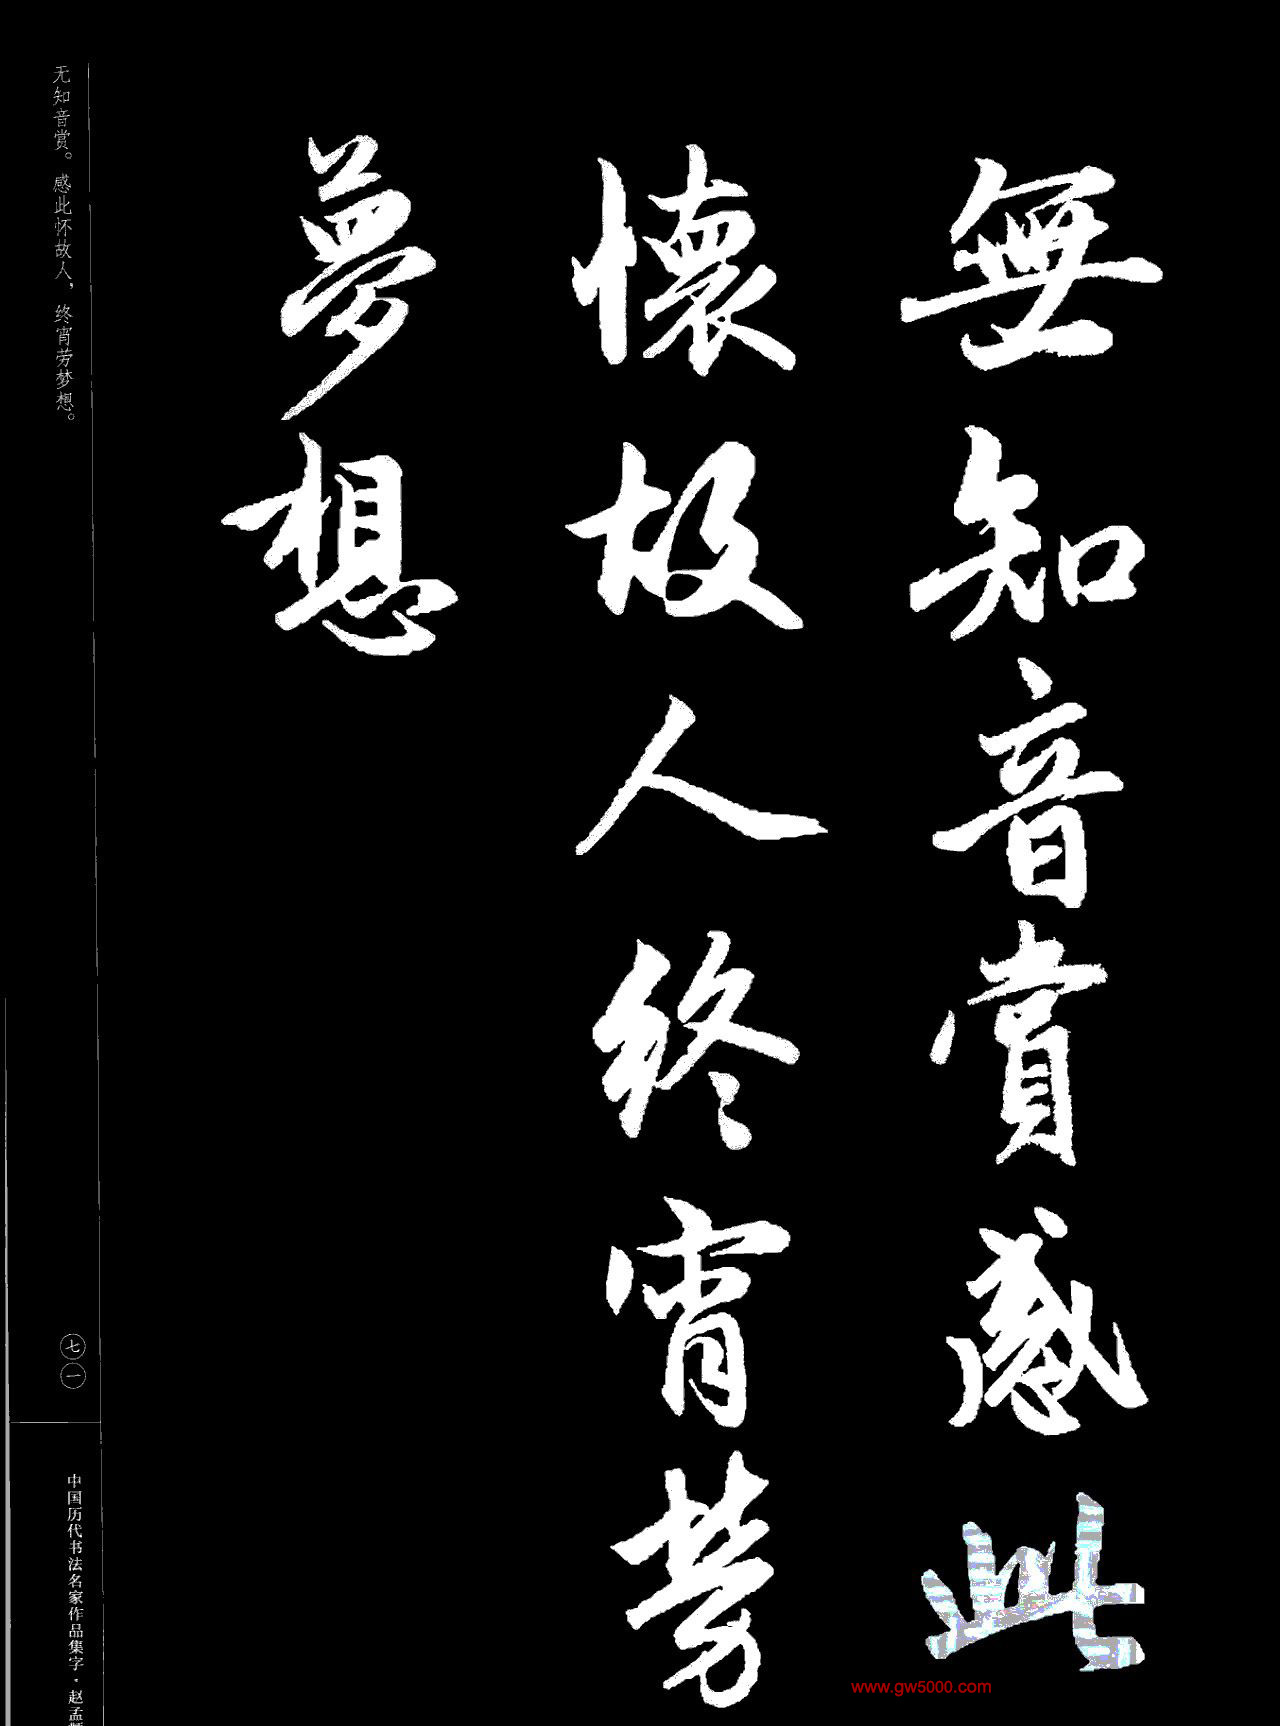 無知音賞感此
懷故人終宵劳
夢想
无知音赏。感此怀故人，终宵劳梦想。
七一
中国历代书法名家作品集字·赵孟
www.gw5000.com